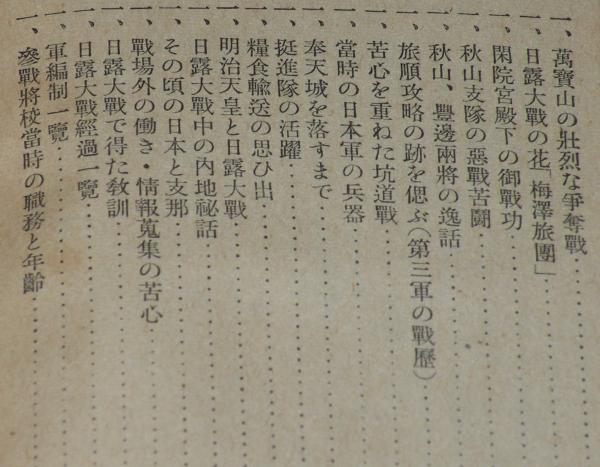 一、萬寶山の壯烈な爭奪戰
一、日露大戰の花「梅澤旅團」
一、閑院宮殿下の御戰功
一、秋山支隊の惡戰苦鬪
一、秋山、豐邊兩將の逸話
一、旅順攻略の跡を偲ぶ(第三軍の戰歷)
一、苦心を重ねた坑道戰
一、當時の日本軍の兵器
一、奉天城を落すまで
一、挺進隊の活躍
一、糧食輸送の思ひ出
一、明治天皇と日露大戰
一、日露大戰中の內地祕話
一、その頃の日本と支那
一、戰場外の働き・情報蒐集の苦心
一、日露大戰で得た敎訓
一、日露大戰經過一覽
一、軍編制一覽
一、參戰將校當時の職務と年齡